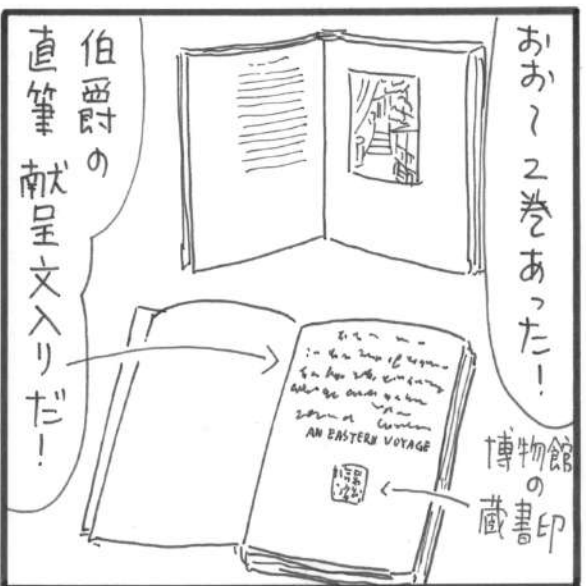 おお〜2巻あった!
伯爵の
直筆 献呈文入りだ!
AN EASTERN VOYAGE
博物館
の
蔵書印